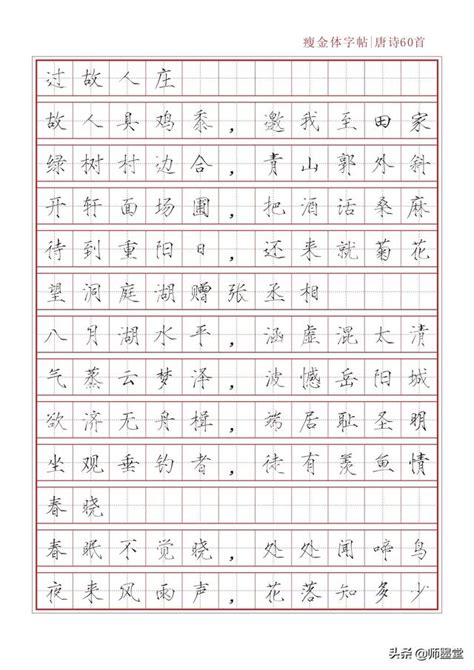 瘦金体字帖|唐诗60首
过故人庄
故人具鸡黍，邀我至田家
绿树村边合，青山郭外斜
开轩面场圃，把酒话桑麻
待到重阳日，还来就菊花
望洞庭湖赠张丞相
八月湖水平，涵虚混太清
气蒸云梦泽，波憾岳阳城
欲济无舟楫，端居耻圣明
坐观垂钓者，徒有羡鱼情
春晓
春眠不觉晓，处处闻啼鸟
夜来风雨声，花落知多少
头条@师噩堂